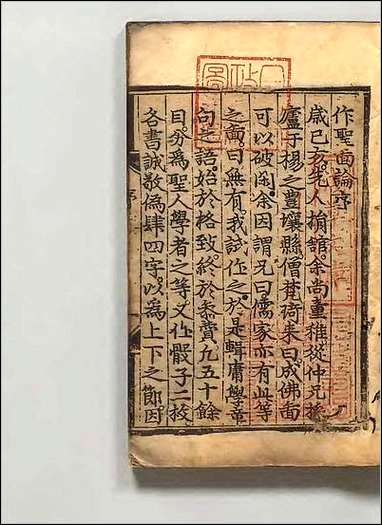 作聖圖論序
歲己亥先人捐舘余尚童稚從仲兄
廬于楊之豊壤縣僧梵琦来曰成佛圖
可以破閑余因謂兄曰儒家亦有此等
之圖曰無有我試作之於是輯庸學章
句之語始於格致終於 費凡五十餘
目分爲聖人學者之等又作骰子二枚
各書誠敬偽肆四字以爲上下之節因
序